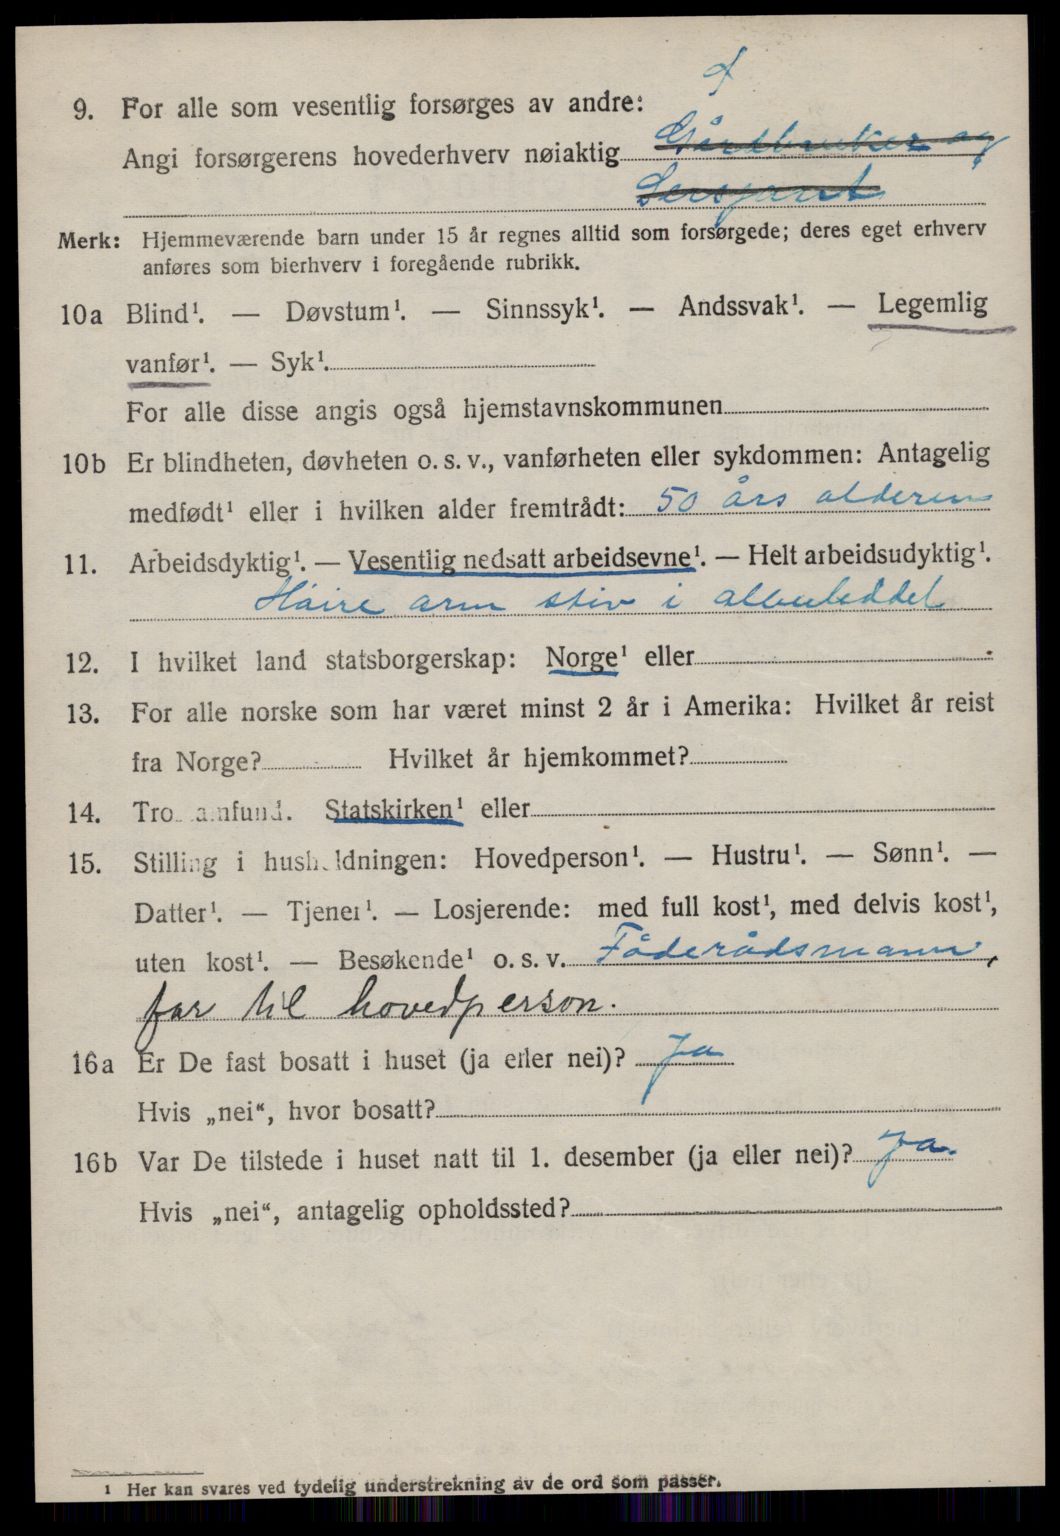 9. For alle som vesentlig forsørges av andre:
Angi forsørgerens hovederhverv nøiaktig Gårdbruker og
Sersjant
Merk: Hjemmeværende barn under 15 år regnes alltid som forsørgede; deres eget erhverv
anføres som bierhverv i foregående rubrikk.
10a Blind¹. — Døvstum¹. — Sinnssyk¹. — Andssvak¹. — Legemlig
vanfør¹. — Syk¹.
For alle disse angis også hjemstavnskommunen
10b Er blindheten, døvheten o. s. v., vanførheten eller sykdommen: Antagelig
medfødt¹ eller i hvilken alder fremtrådt: 50 års alderen
11. Arbeidsdyktig¹. — Vesentlig nedsatt arbeidsevne¹. — Helt arbeidsudyktig¹.
Høire arm stiv i albuleddet
12. I hvilket land statsborgerskap: Norge¹ eller
13. For alle norske som har været minst 2 år i Amerika: Hvilket år reist
fra Norge? Hvilket år hjemkommet?
14. Trossamfund. Statskirken¹ eller
15. Stilling i husholdningen: Hovedperson¹. — Hustru¹. — Sønn¹. —
Datter¹. — Tjener¹. — Losjerende: med full kost¹, med delvis kost¹,
uten kost¹. — Besøkende¹ o. s. v. Føderådsmann,
far til hovedperson.
16a Er De fast bosatt i huset (ja eller nei)? Ja
Hvis „nei“, hvor bosatt?
16b Var De tilstede i huset natt til 1. desember (ja eller nei)? Ja.
Hvis „nei“, antagelig opholdssted?
¹ Her kan svares ved tydelig understrekning av de ord som passer.